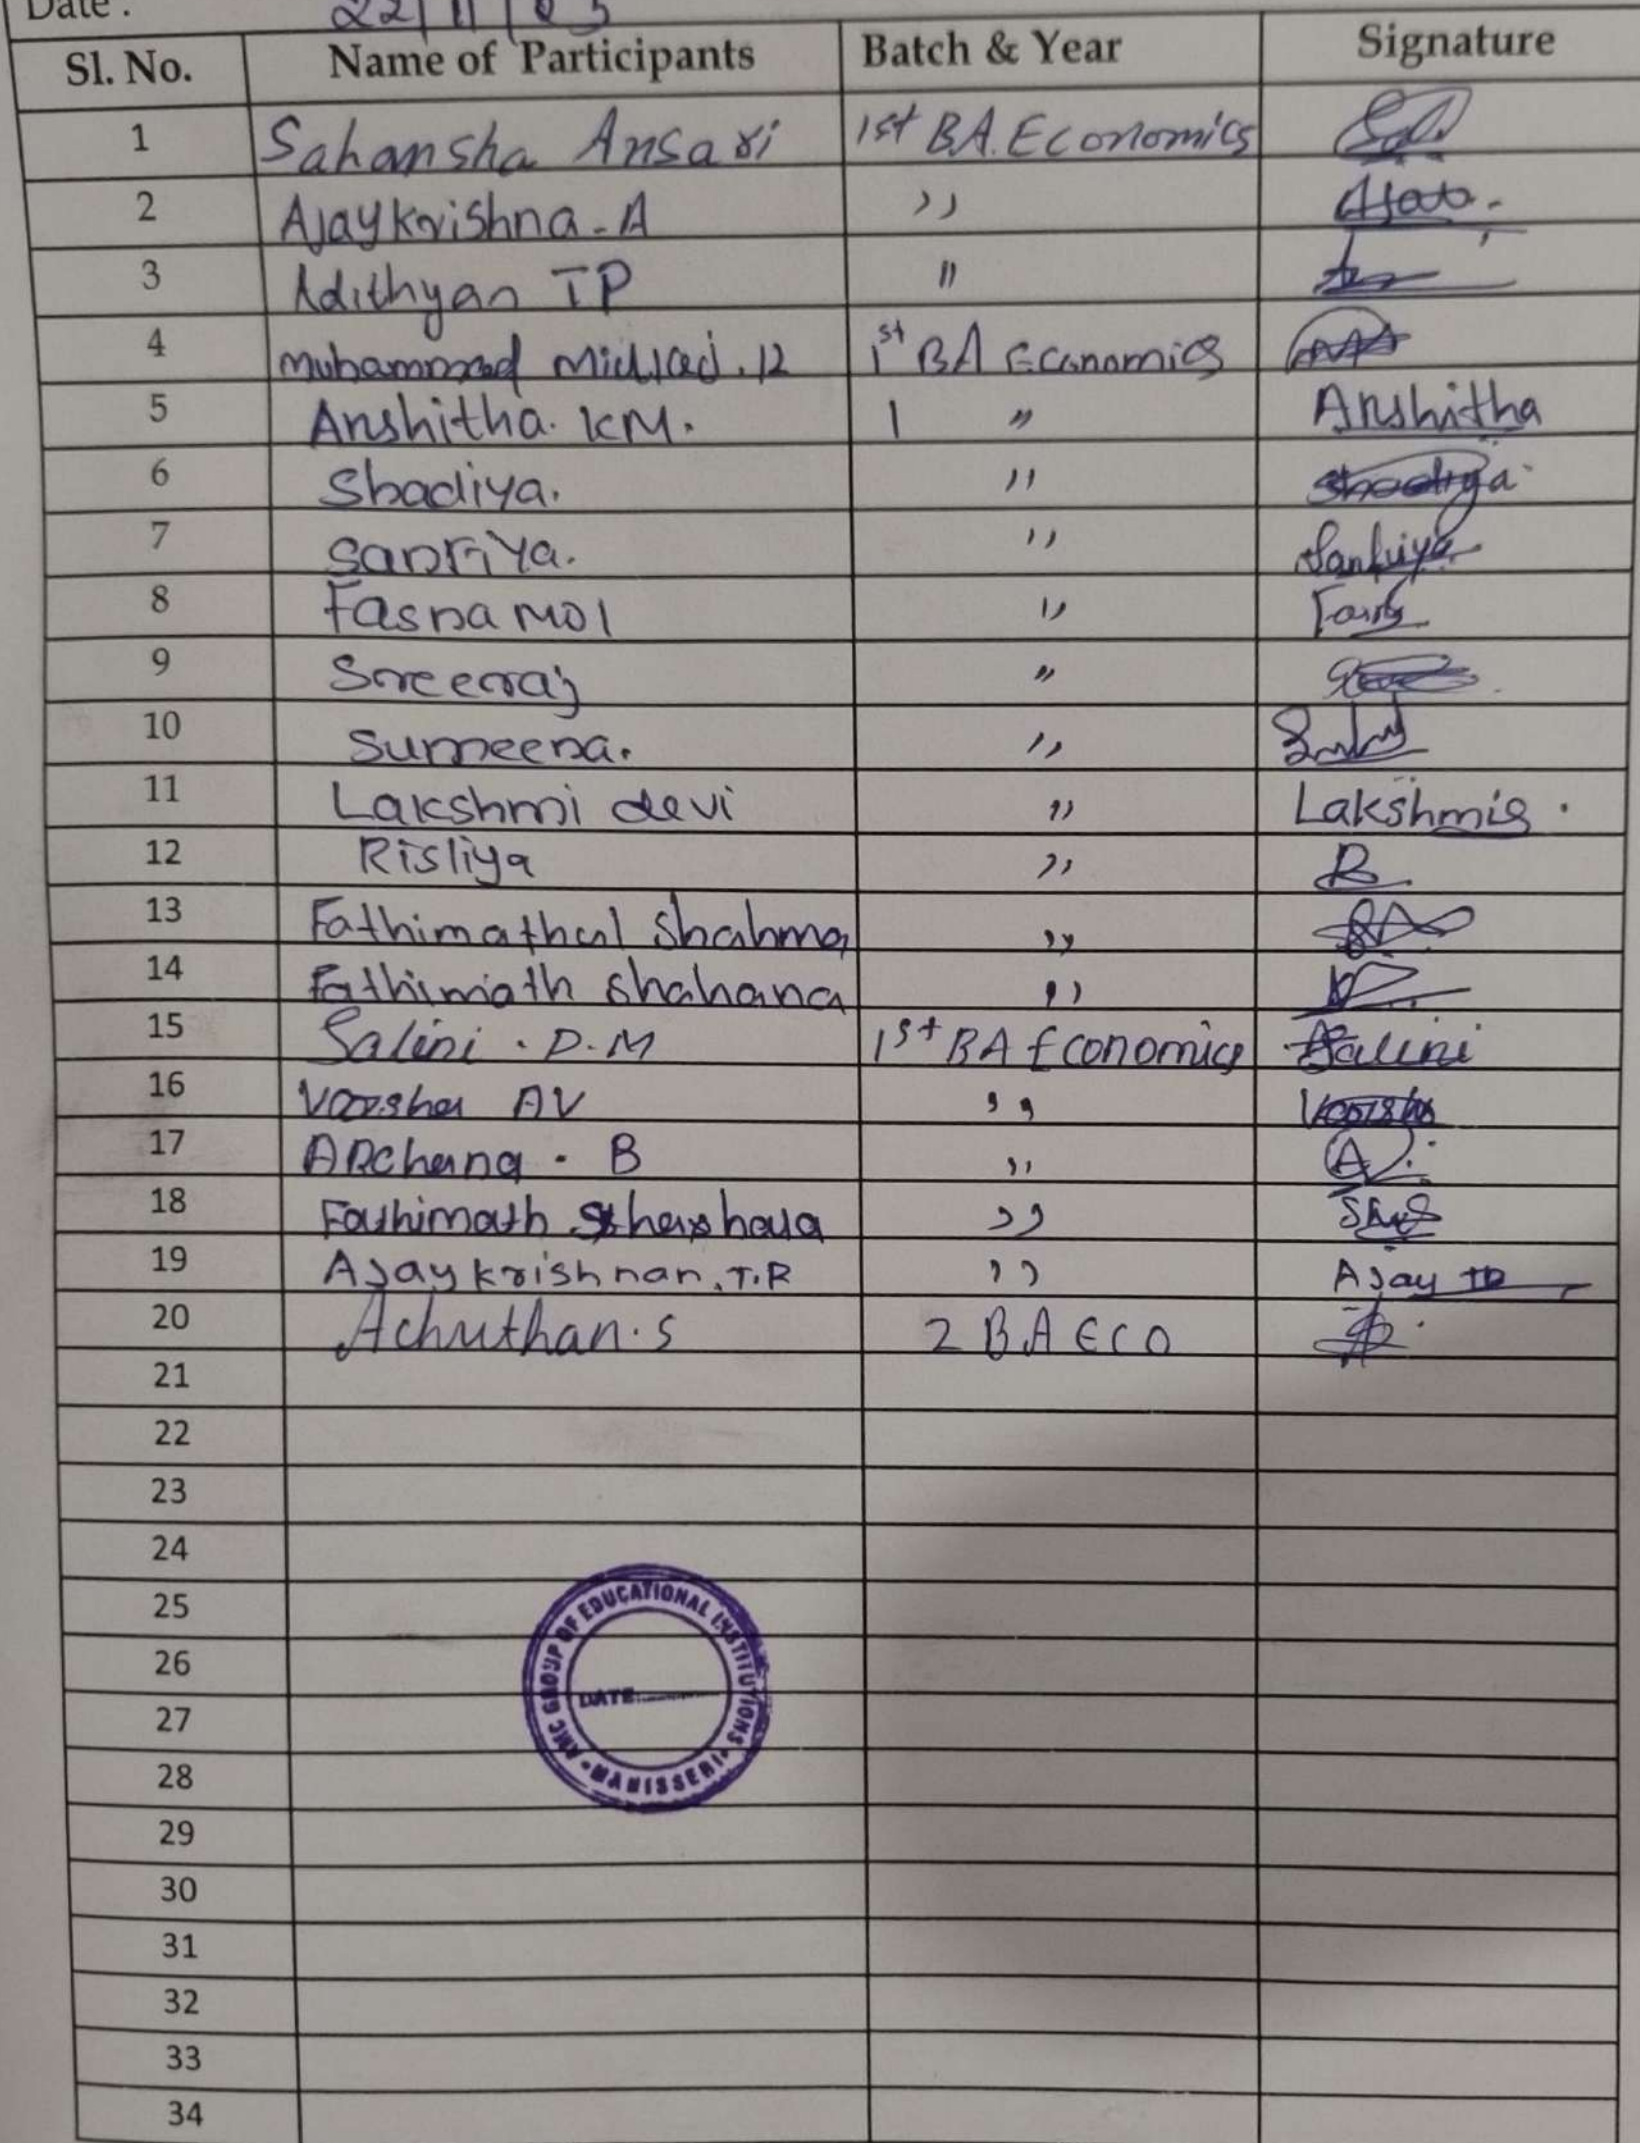 Date :
Sl. No. Name of Participants Batch & Year Signature
1 Sahansha Ansari 1st BA. Economics
2 Ajaykrishna - A ,,
3 Adithyan TP "
4 Muhammed 1st BA Economics
5 Anshitha. KM. 1 " Anshitha
6 Shadiya. " Shadiya
7 Sanfiya. " Sanfiya
8 Fasna Mol "
9 Sreeraj "
10 Sumeena. "
11 Lakshmi devi " Lakshmi
12 Risliya " R
13 Fathimathul Shahma "
14 Fathimath Shahana "
15 Salini . P.M 1st BA Economics Salini
16 Varsha AV " Varsha
17 Archana . B " A
18 Fathimath "
19 Ajay krishnan. T.R " Ajay
20 Achuthan. S 2 BA ECO
21
22
23
24
25
26
27
28
29
30
31
32
33
34
AMC GROUP OF EDUCATIONAL INSTITUTIONS
DATE
MANISSERI